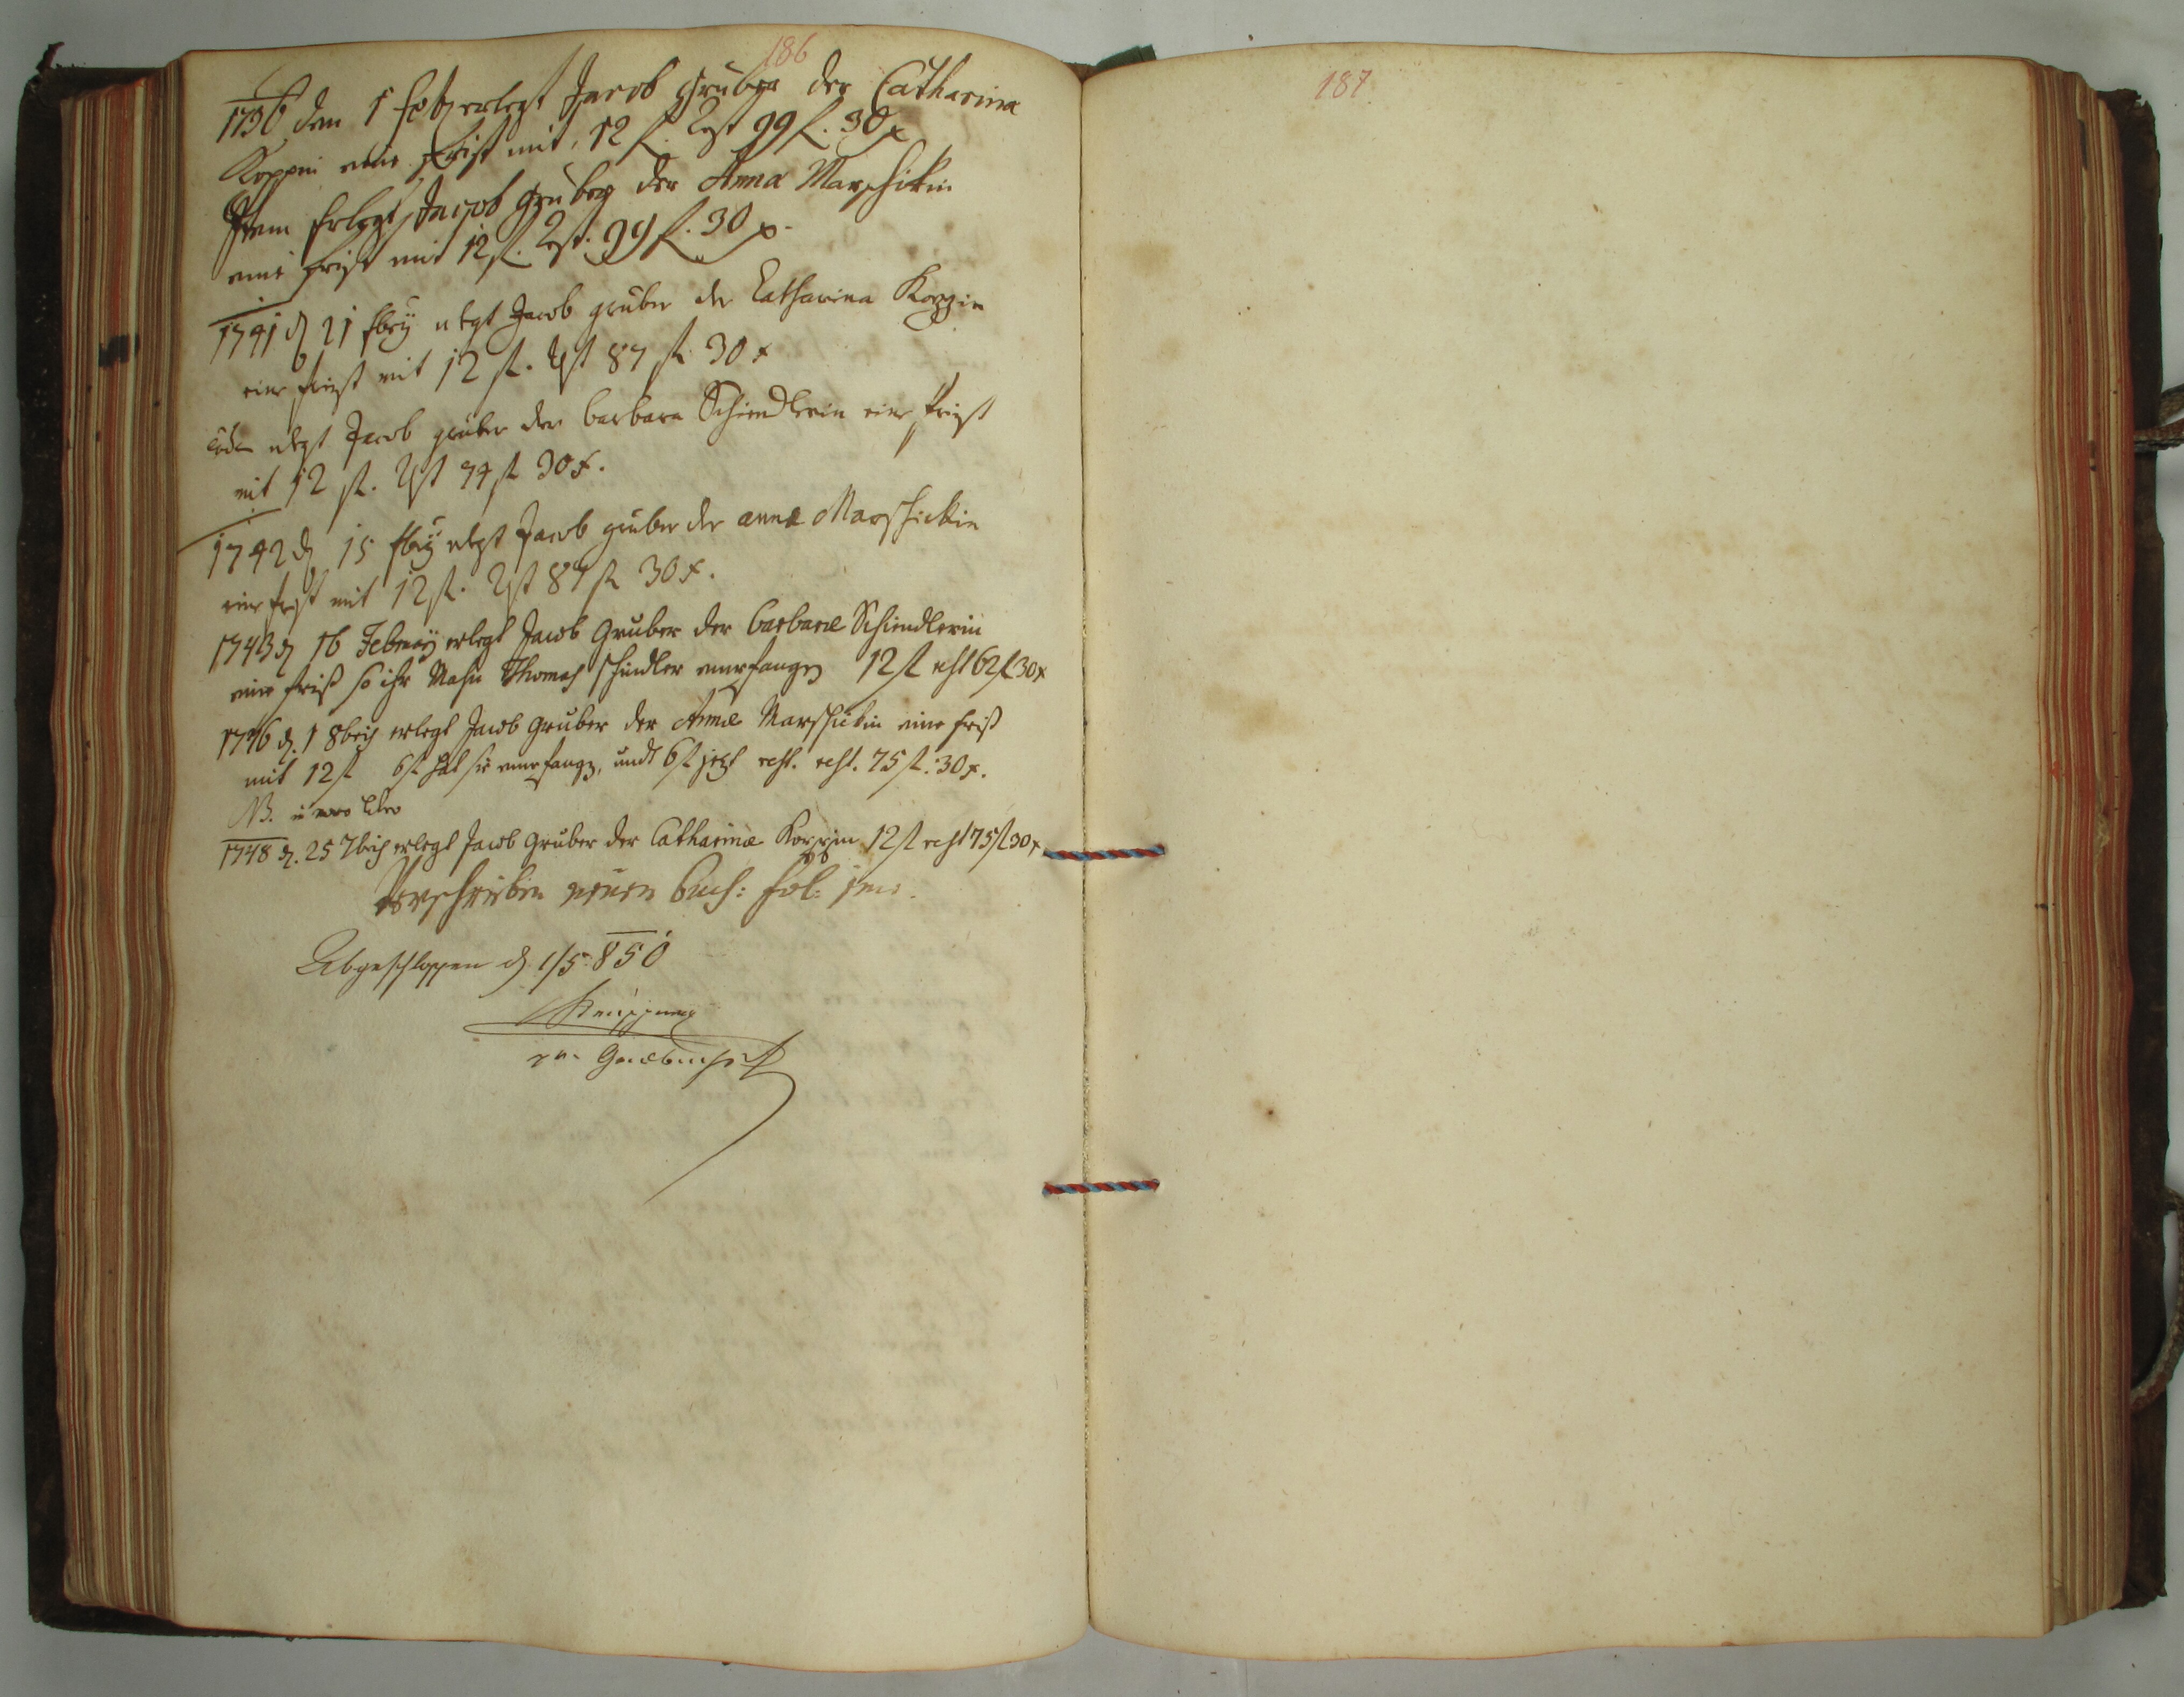 186
1736 den 1 feb erlegt Jacob Gruber der Catharina
Koppin eine frist mit 12 fl. Rest 99 fl. 30 x
Item Erlegt Jacob Gruber der Anna Marschikin
eine frist mit 12 fl. Rest. 99 fl. 30 x.
1741 d 21 fbrÿ erlegt Jacob gruber der Catharina Koppin
eine frist mit 12 fl. Rest 87 fl 30 x
erlegt Jacob gruber der barbara Schiendlerin eine frist
mit 12 fl. Rest 74 fl 30 x.
1742 d 15 fbrÿ erlegt Jacob gruber der anna Marschickin
eine frist mit 12 fl. Rest 87 fl 30 x.
1743 d 16 Februarÿ erlegt Jacob Gruber der barbara Schiendlerin
eine frist so ihr Mahn Thomas schindler empfangen 12 fl rest 62 fl 30 x
1746 d. 1 8bris erlegt Jacob Gruber der Anna Marschickin eine frist
mit 12 fl 6 fl hat sie empfangen, undt 6 fl jetzt rest. 75 fl. 30 x.
NB. in novo libro
1748 d. 25 7bris erlegt Jacob Gruber der Catharina Koppin 12 fl rest 75 fl 30 x
Verschrieben neuen buch: fol:
Abgeschlossen d 1/5 850
187